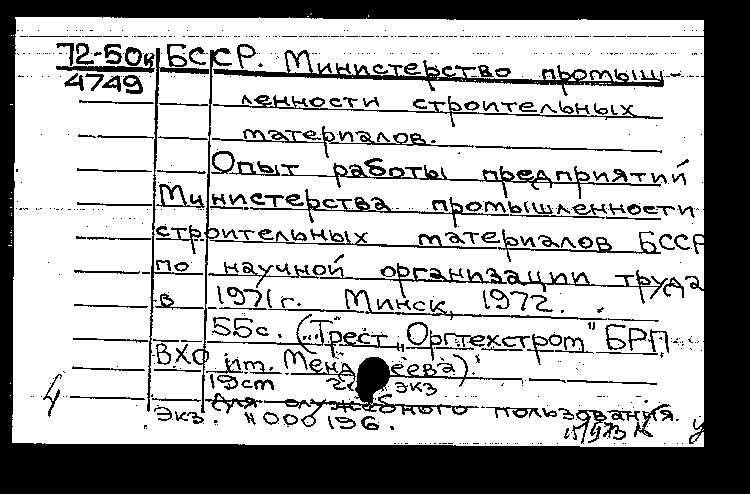 72-50к БССР. Министерство промыш-
4749
ленности строительных
материалов.
Опыт работы предприятий
Министерства промышленности
строительных материалов БССР
по научной организации труда
в 1971г. Минск, 1972.
55с. (Трест „Оргтехстром" БРП
ВХО им. Менделеева).
19ст экз
Для служебного пользования.
Экз. №000196.
4